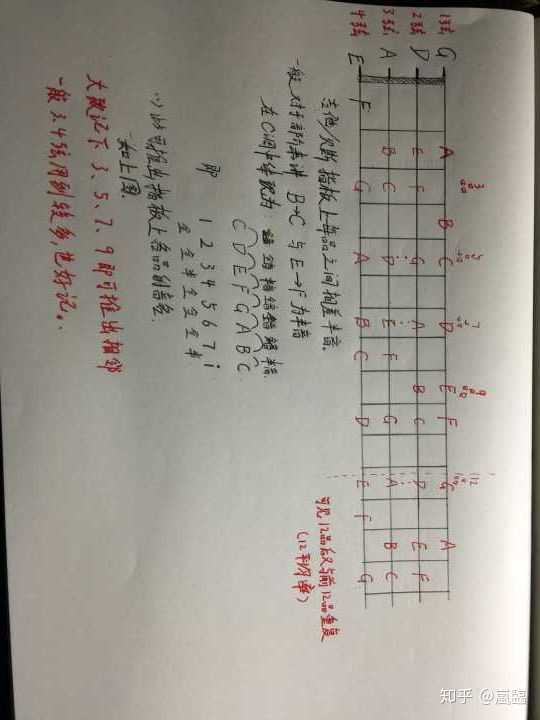 3品 5品 7品 9品 12品
1弦 G A B C D E F G A
2弦 D E F G A B C D E F
3弦 A B C D E F G A B C
4弦 E F G A B C D E F G
可见12品后又与前12品重复
(12平均律)
吉他/贝斯 指板上每品之间相差半音。
一般对于音阶来讲 B→C 与 E→F 为半音
在C调中体现为:
C D E F G A B C
即 1 2 3 4 5 6 7 i
全 全 半 全 全 全 半
以此可推出指板上各品到音名.
如上图.
大致记下 3、5、7、9 即可推出相邻
一般 3.4弦用到较多,也好记。
知乎 @嵐臨